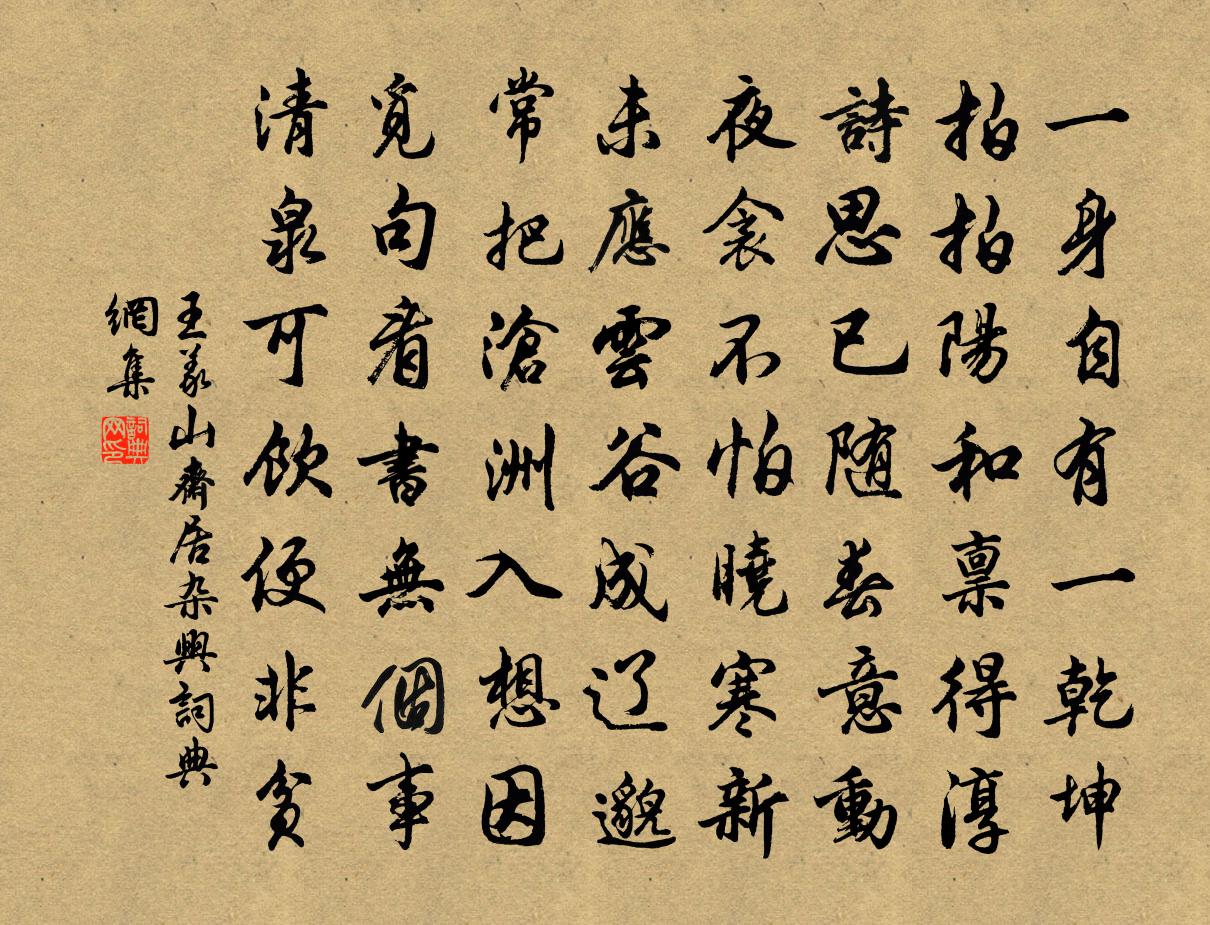 一身自有一乾坤
拍拍陽和禀得淳
詩思已随春意動
夜衾不怕曉寒新
未應雲谷成辽邈
常把滄洲入想因
覓句看書無個事
清泉可飲便非貧
王义山齋居杂興詞典
網集
詞典
网印